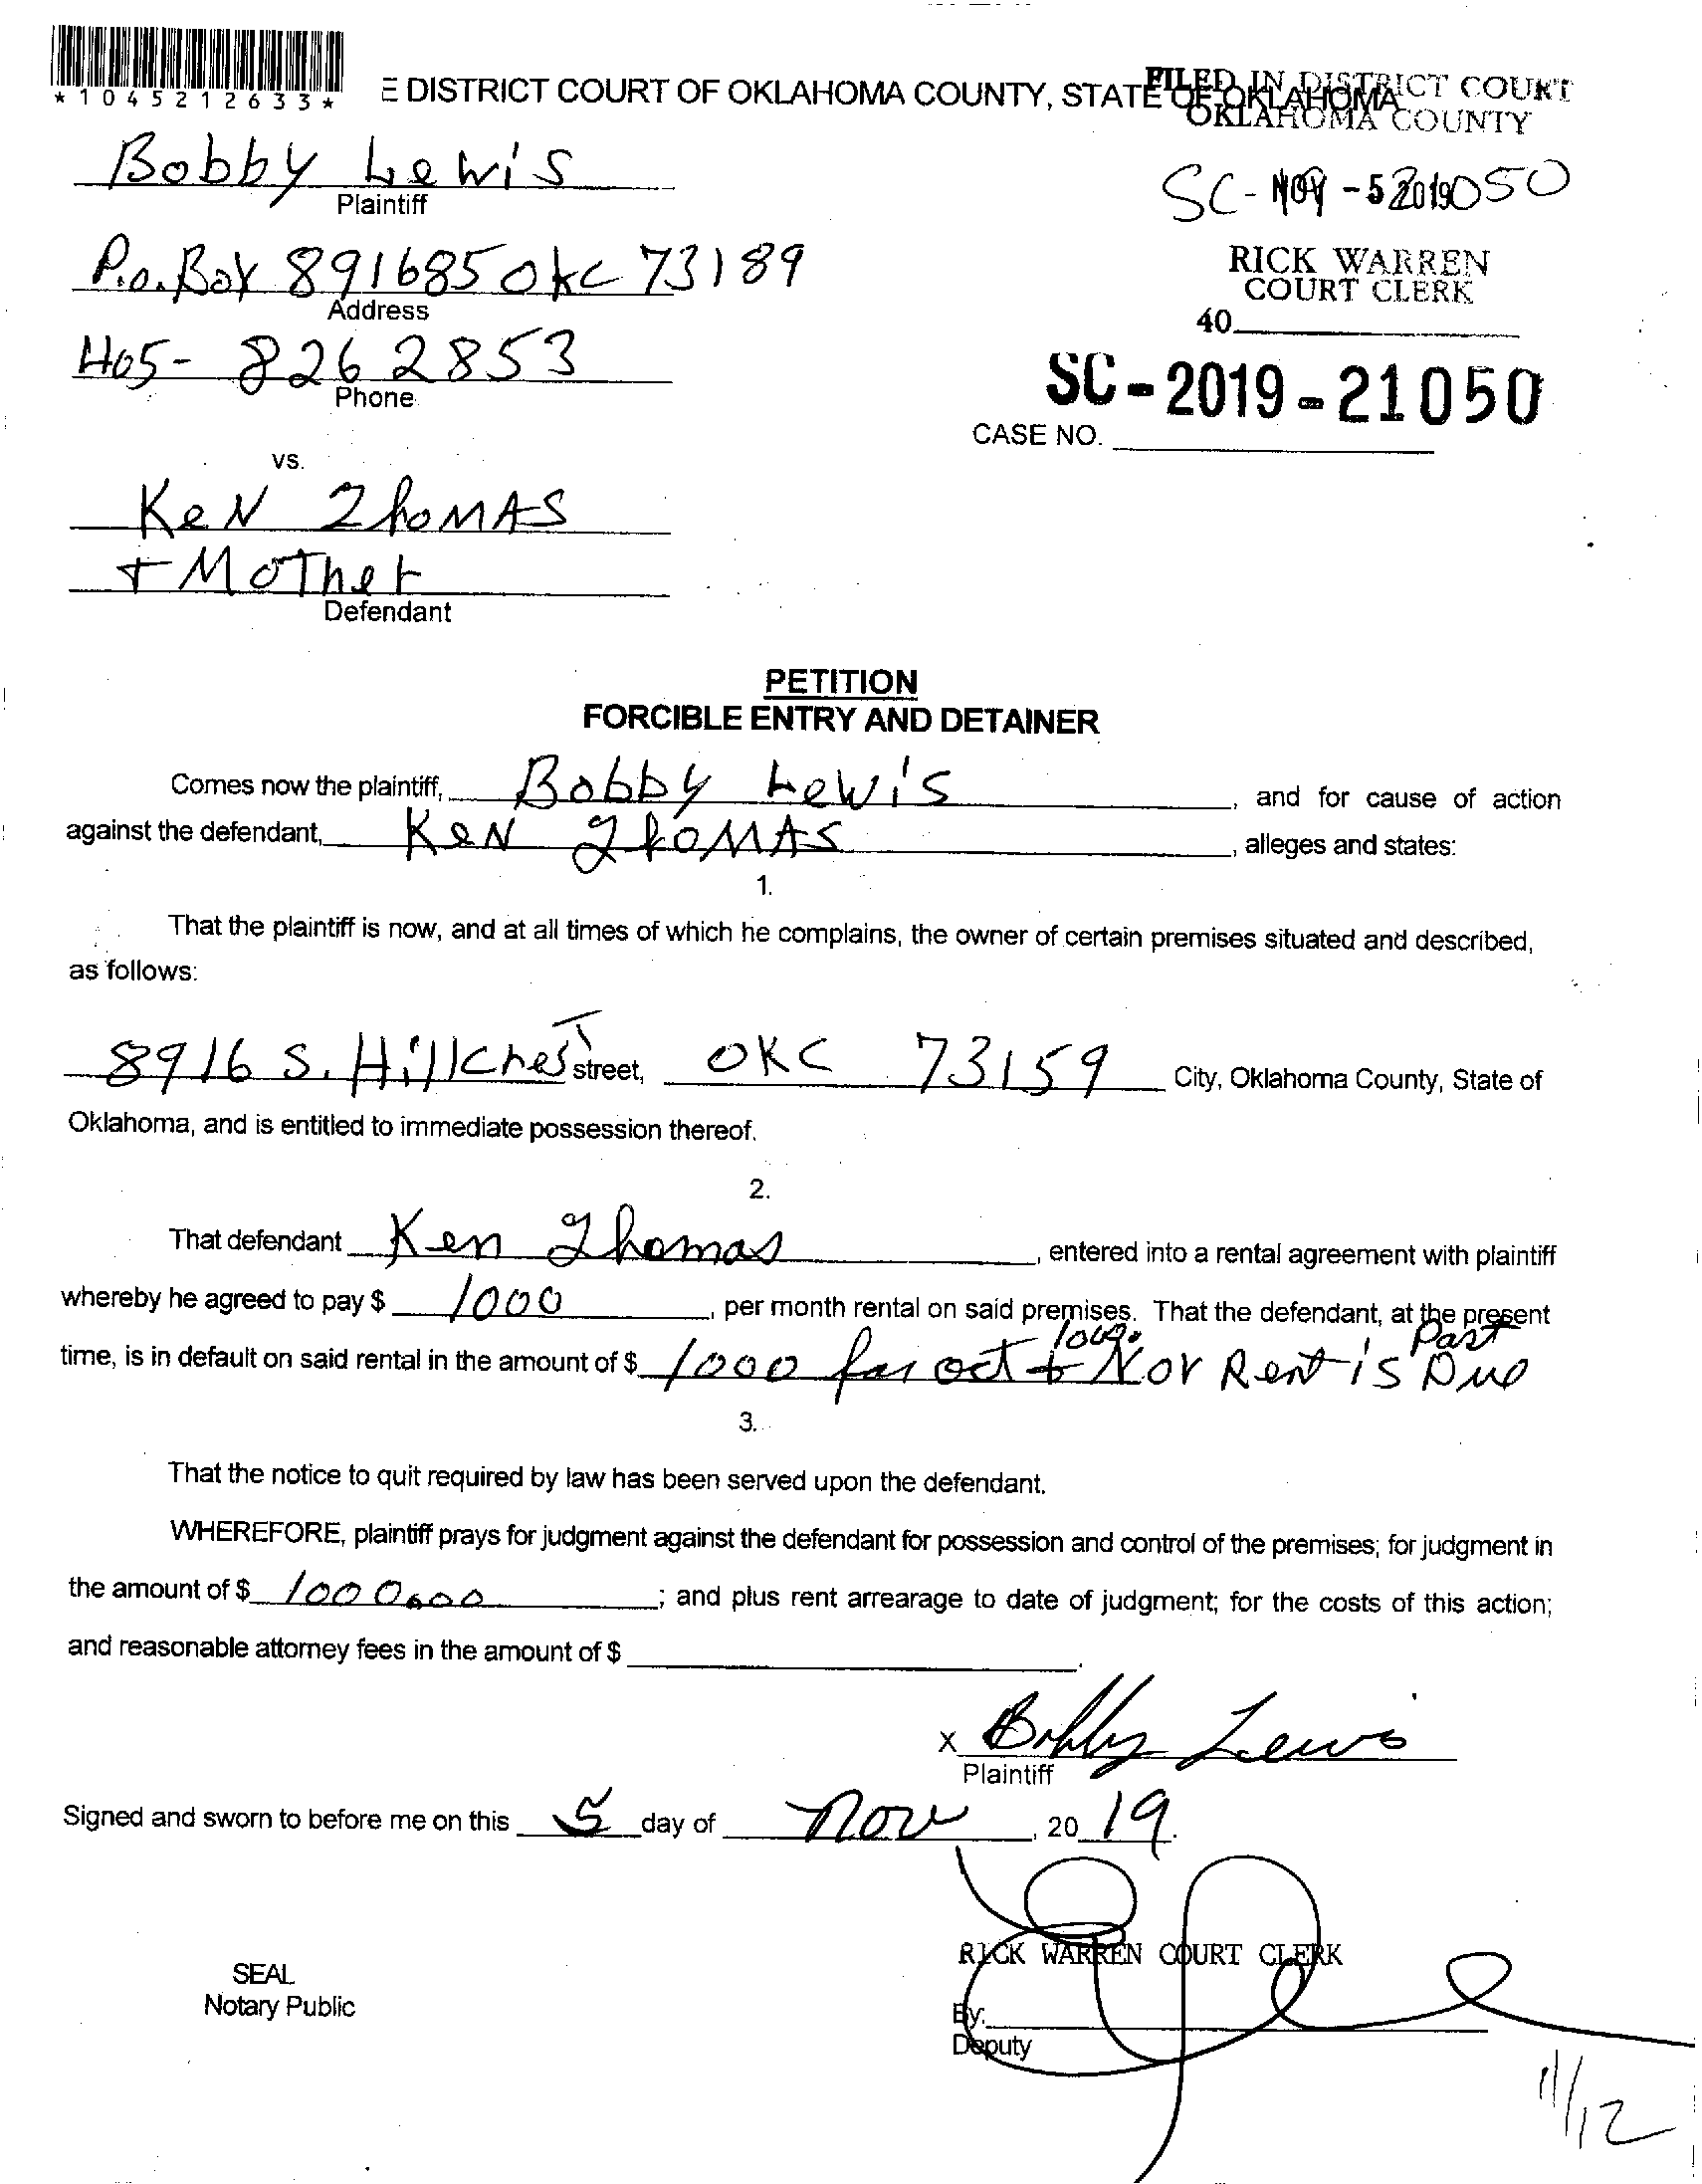 *1045212633*
E DISTRICT COURT OF OKLAHOMA COUNTY, STATE OF OKLAHOMA
FILED IN DISTRICT COURT
OKLAHOMA COUNTY
Bobby Lewis
Plaintiff
SC- NOV -5 2019 050
P.O. Box 891685 OKC 73189
Address
RICK WARREN
COURT CLERK
40
405- 826 2853
Phone
SC-2019-21050
CASE NO.
vs.
Ken Thomas
+ Mother
Defendant
PETITION
FORCIBLE ENTRY AND DETAINER
Comes now the plaintiff, Bobby Lewis, and for cause of action
against the defendant, Ken Thomas, alleges and states:
1.
That the plaintiff is now, and at all times of which he complains, the owner of certain premises situated and described,
as follows:
8916 S. Hillcrest street, OKC 73159 City, Oklahoma County, State of
Oklahoma, and is entitled to immediate possession thereof.
2.
That defendant Ken Thomas, entered into a rental agreement with plaintiff
whereby he agreed to pay $ 1000, per month rental on said premises. That the defendant, at the present
time, is in default on said rental in the amount of $ 1000 for oct + Nov Rent is Past Due
3.
That the notice to quit required by law has been served upon the defendant.
WHEREFORE, plaintiff prays for judgment against the defendant for possession and control of the premises; for judgment in
the amount of $ 1000.00; and plus rent arrearage to date of judgment; for the costs of this action;
and reasonable attorney fees in the amount of $
x Bobby Lewis
Plaintiff
Signed and sworn to before me on this 5 day of Nov, 2019.
RICK WARREN COURT CLERK
SEAL
Notary Public
By:
Deputy
11/12